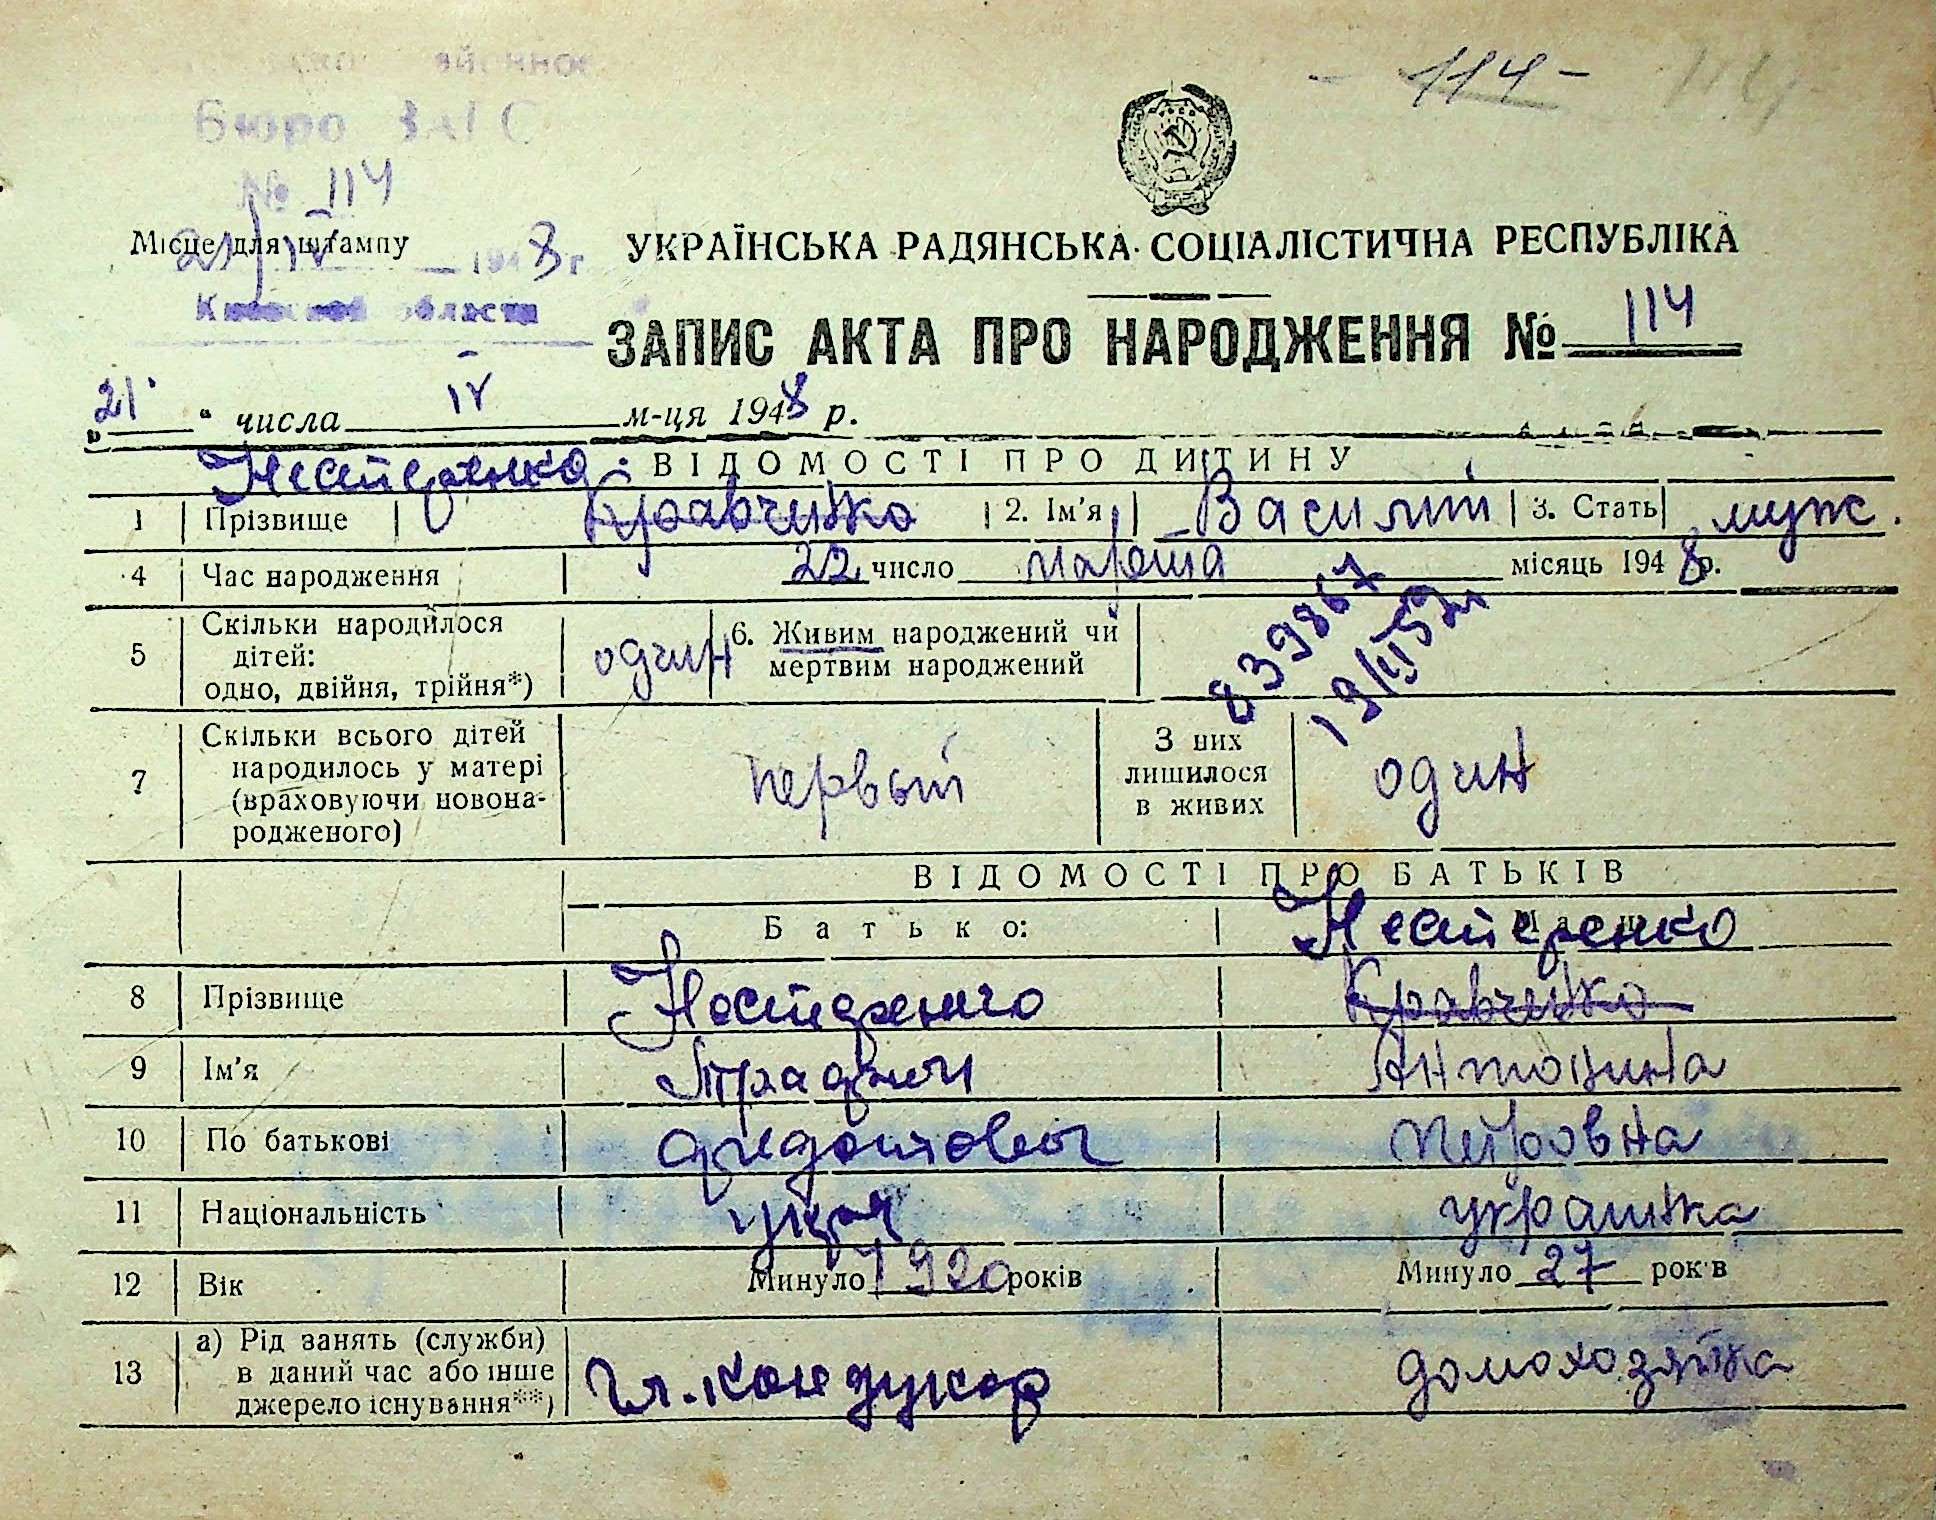 - 114 -
Бюро ЗАГС
№ 114
Місце для штампу
21/IV 1948 г
области
УКРАЇНСЬКА РАДЯНСЬКА СОЦІАЛІСТИЧНА РЕСПУБЛІКА
ЗАПИС АКТА ПРО НАРОДЖЕННЯ № 114
„21“ числа IV м-ця 1948 р.
ВІДОМОСТІ ПРО ДИТИНУ
Нестеренко
1 Прізвище Кравченко 2. Ім'я Василий 3. Стать муж.
4 Час народження 22 число марта місяць 1948 р.
5 Скільки народилося
дітей:
одно, двійня, трійня*) один
6. Живим народжений чи
мертвим народжений
839867
7 Скільки всього дітей
народилось у матері
(враховуючи новона-
родженого) первый
З них
лишилося
в живих один
ВІДОМОСТІ ПРО БАТЬКІВ
Батько:
Нестеренко
8 Прізвище Нестеренко Кравченко
9 Ім'я Антонина
10 По батькові Федотович Петровна
11 Національність укр украинка
12 Вік Минуло 1920 років Минуло 27 років
13 а) Рід занять (служби)
в даний час або інше
джерело існування**) гл. кондуктор домохозяйка